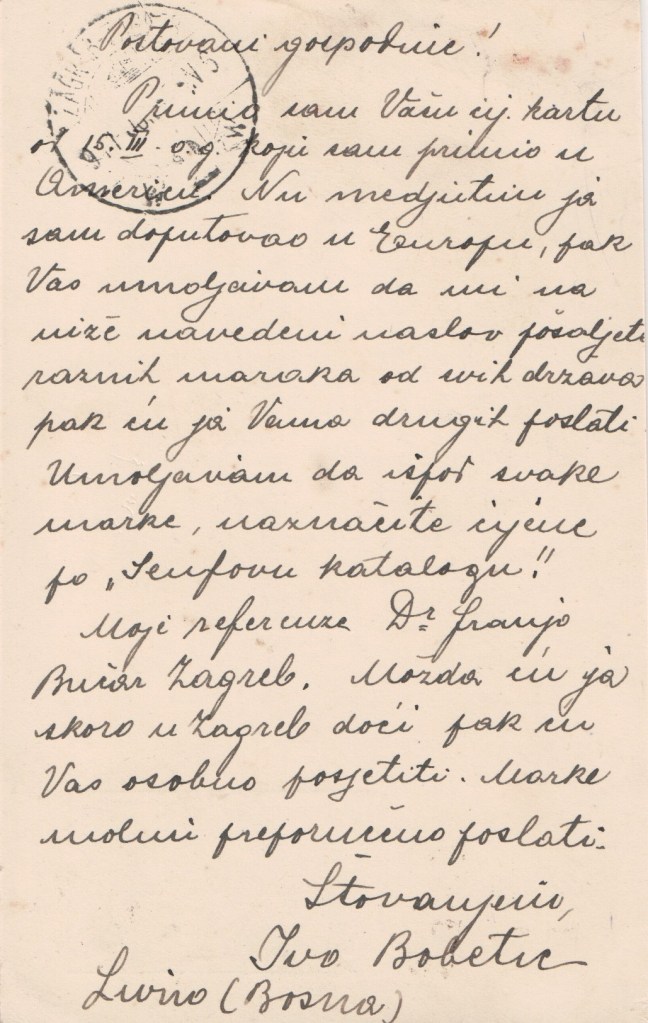 Poštovani gospodine!
Primio sam Vašu cij. kartu
od III o. g. koju sam primio u
Americi. Nu medjutim ja
sam doputovao u Europu, pak
Vas umoljavam da mi na
niže navedeni naslov pošaljete
raznih maraka od svih država
pak ću ja Vama drugih poslati
Umoljavam da ispod svake
marke, naznačite cijene
po „Senfovu katalogu"!
Moji referenze Dr Franjo
Bučar Zagreb. Možda ću ja
skoro u Zagreb doći pak ću
Vas osobno posjetiti. Marke
molim preporučeno poslati.
Štovanjem,
Ivo Bobetic
Livno (Bosna)